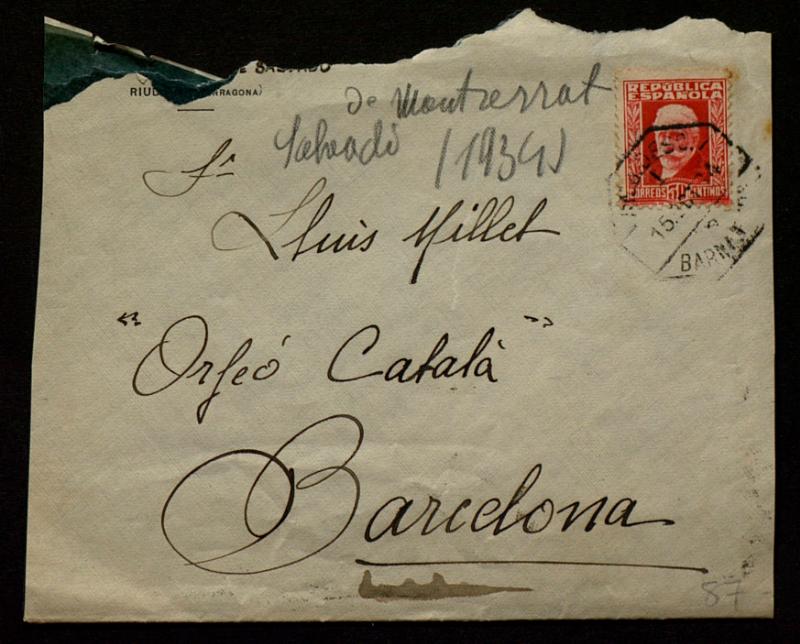 RIUD (TARRAGONA)
de Montserrat
Salvadó (1934)
REPÚBLICA
ESPAÑOLA
CORREOS CENTIMOS
15.
BARNA
Sr
Lluis Millet
"Orfeó Català"
Barcelona
87